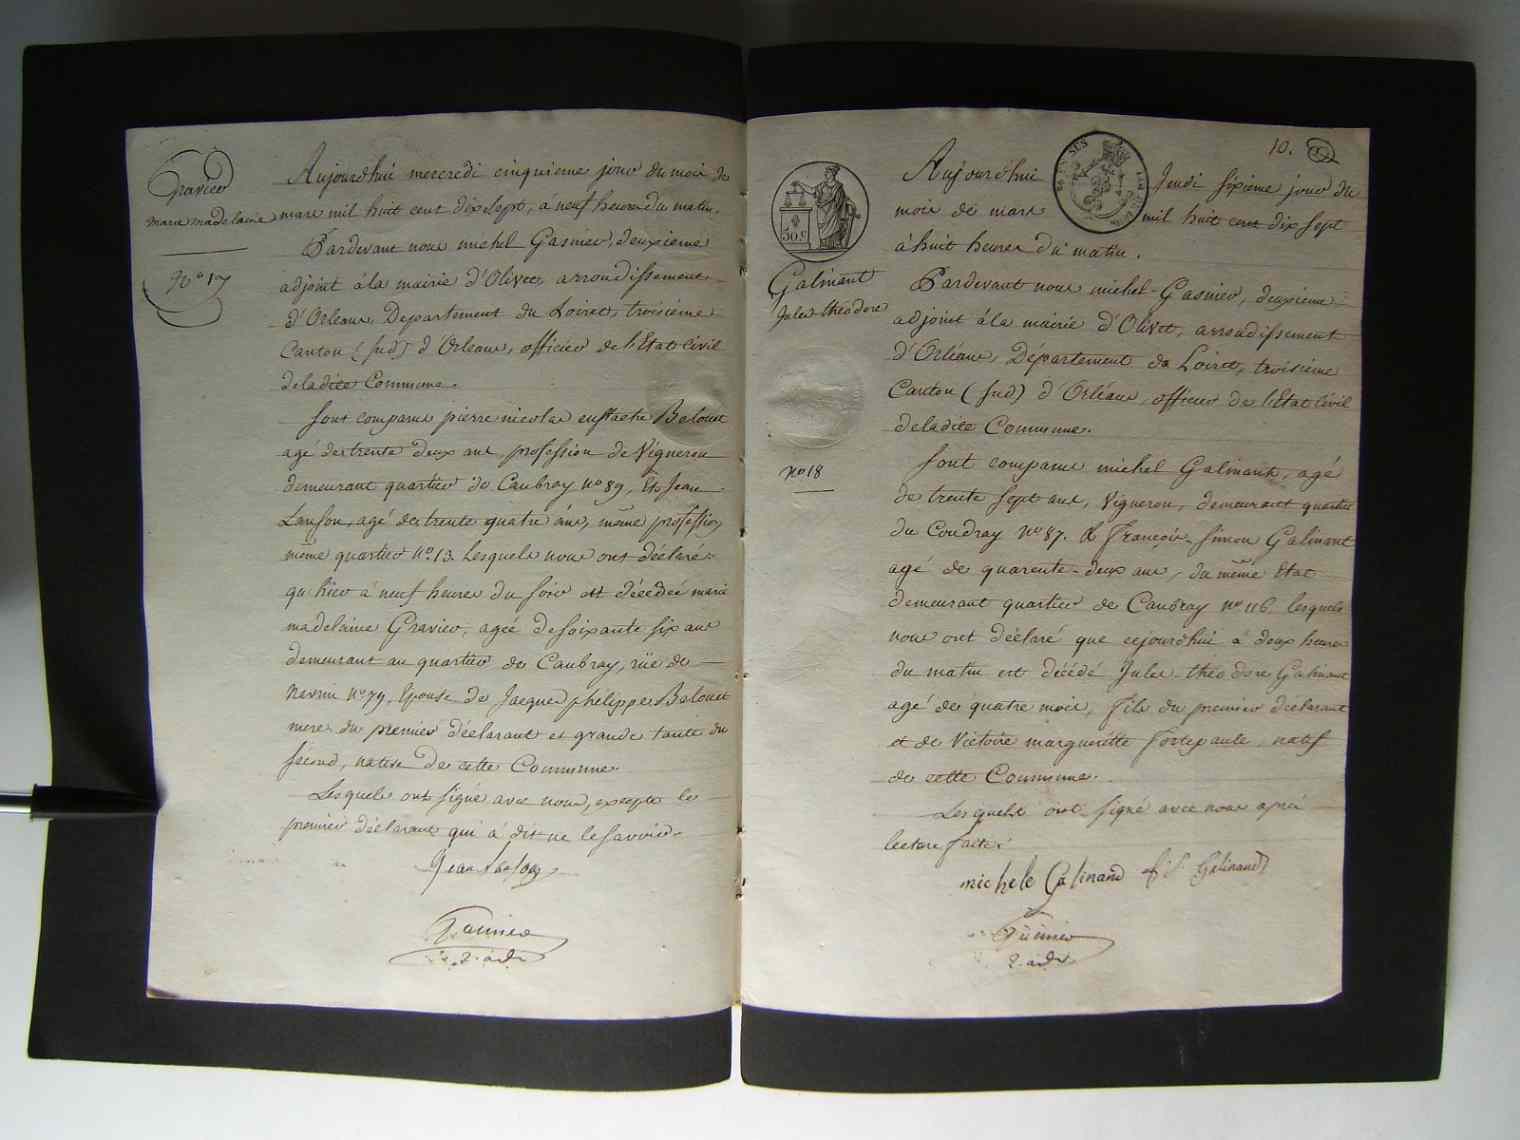 Gravier
marie madelaine
N° 17
Aujourd'hui mercredi cinquieme jour du mois de
mars mil huit cent dix sept, a neuf heures du matin.
Pardevant nous michel Gasnier, deuxieme
adjoint à la mairie d'Olivet, arrondissement
d'Orleans, Departement du Loiret, troisieme
Canton (sud) d'Orleans, officier de l'Etat Civil
de la dite Commune.
Sont comparus pierre nicolas eustache Belouet
agé de trente deux ans, profession de Vigneron
demeurant quartier de Caubray n° 89, Et Jean
Lanson, agé de trente quatre ans, même profession
même quartier N° 13 Lesquels nous ont déclaré
qu'hier à neuf heures du soir est décédée marie
madelaine Gravier, agée de soixante six ans
demeurant au quartier de Caubray, rüe de
n° 79, Epouse de Jacques philippe Belouet
mere du premier déclarant et grande tante du
second, native de cette Commune.
Lesquels ont signé avec nous, excepté le
premier déclarant qui à dit ne le savoir.
Jean
Gasnier
2. adj
10.
Galinant
Jules théodore
50. c
n° 18
Aujourd'hui Jeudi sixieme jour du
mois de mars mil huit cent dix sept
à huit heures du matin.
Pardevant nous michel Gasnier, deuxieme
adjoint à la mairie d'Olivet, arrondissement
d'Orléans, Département du Loiret, troisieme
Canton (sud) d'Orléans, officier de l'Etat Civil
de la dite Commune.
Sont comparus michel Galinant, agé
de trente sept ans, Vigneron, demeurant quartier
du Coudray N° 87. & François Simon Galinant
agé de quarente-deux ans, du même Etat
demeurant quartier de Caubray n° 116, lesquels
nous ont déclaré que cejourd'hui à deux heures
du matin est décédé Jules théodore Galinant
agé de quatre mois, fils du premier déclarant
et de Victoire margueritte Fortepaule, natif
de cette Commune.
Lesquels ont signé avec nous après
lecture faite.
michele Galinand f s Galinand
Gasnier
2. adj